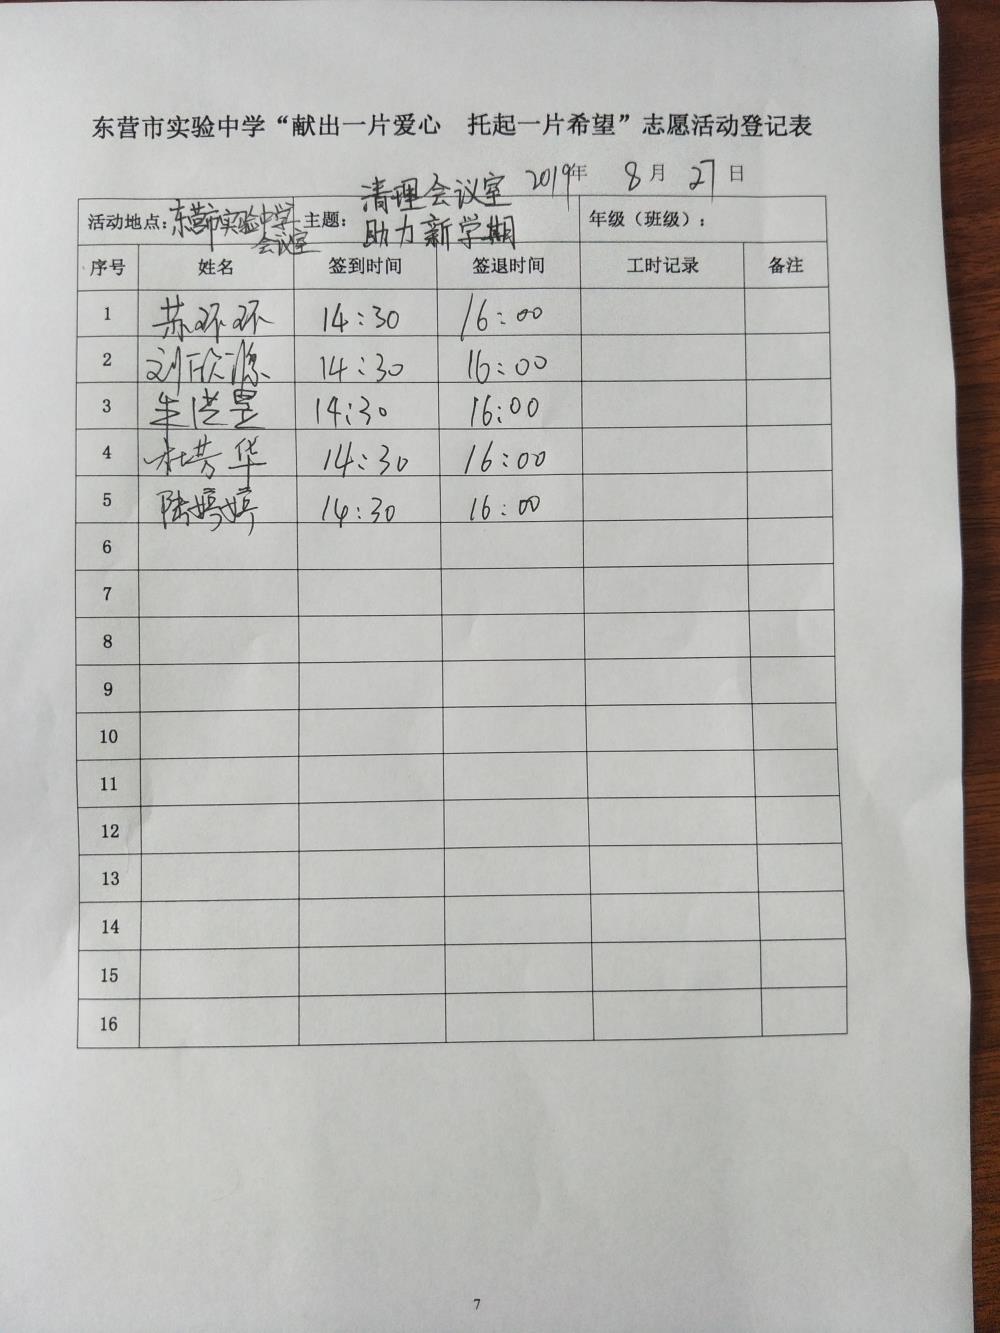 东营市实验中学“献出一片爱心 托起一片希望”志愿活动登记表
2019年 8月 27日
活动地点：东营市实验中学会议室 主题：清理会议室 助力新学期 年级（班级）：
序号 姓名 签到时间 签退时间 工时记录 备注
1 苏环环 14:30 16:00
2 刘欣源 14:30 16:00
3 朱洪昱 14:30 16:00
4 杜芳华 14:30 16:00
5 陆婷婷 14:30 16:00
6
7
8
9
10
11
12
13
14
15
16
7